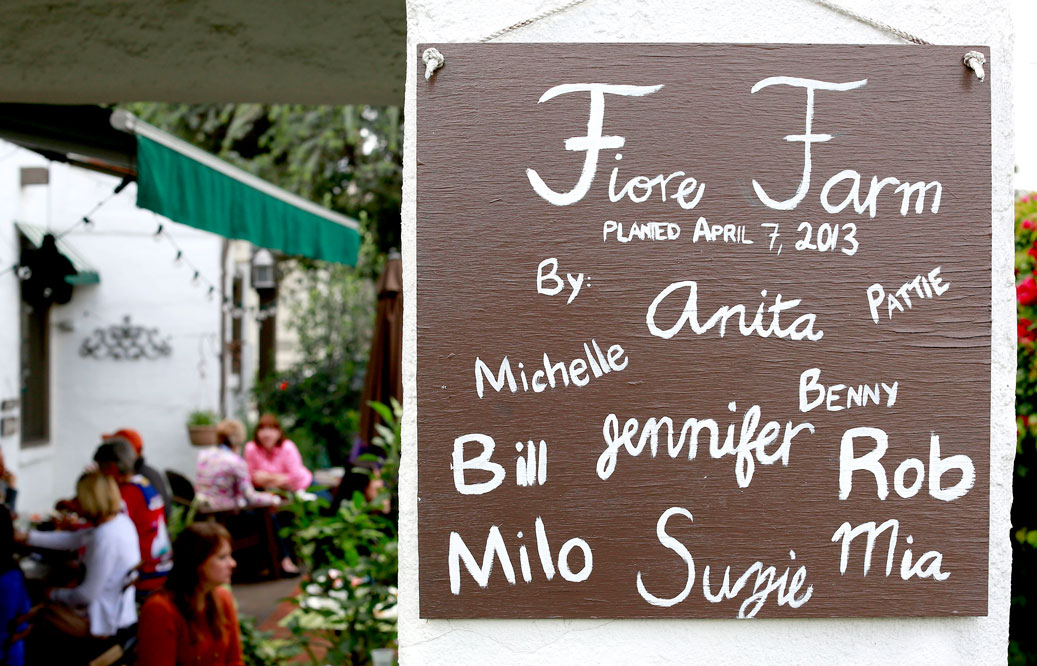 Fiore Farm
PLANTED APRIL 7, 2013
By:
Anita
PATTIE
Michelle
BENNY
Bill
Jennifer
Rob
Milo
Suzie
Mia